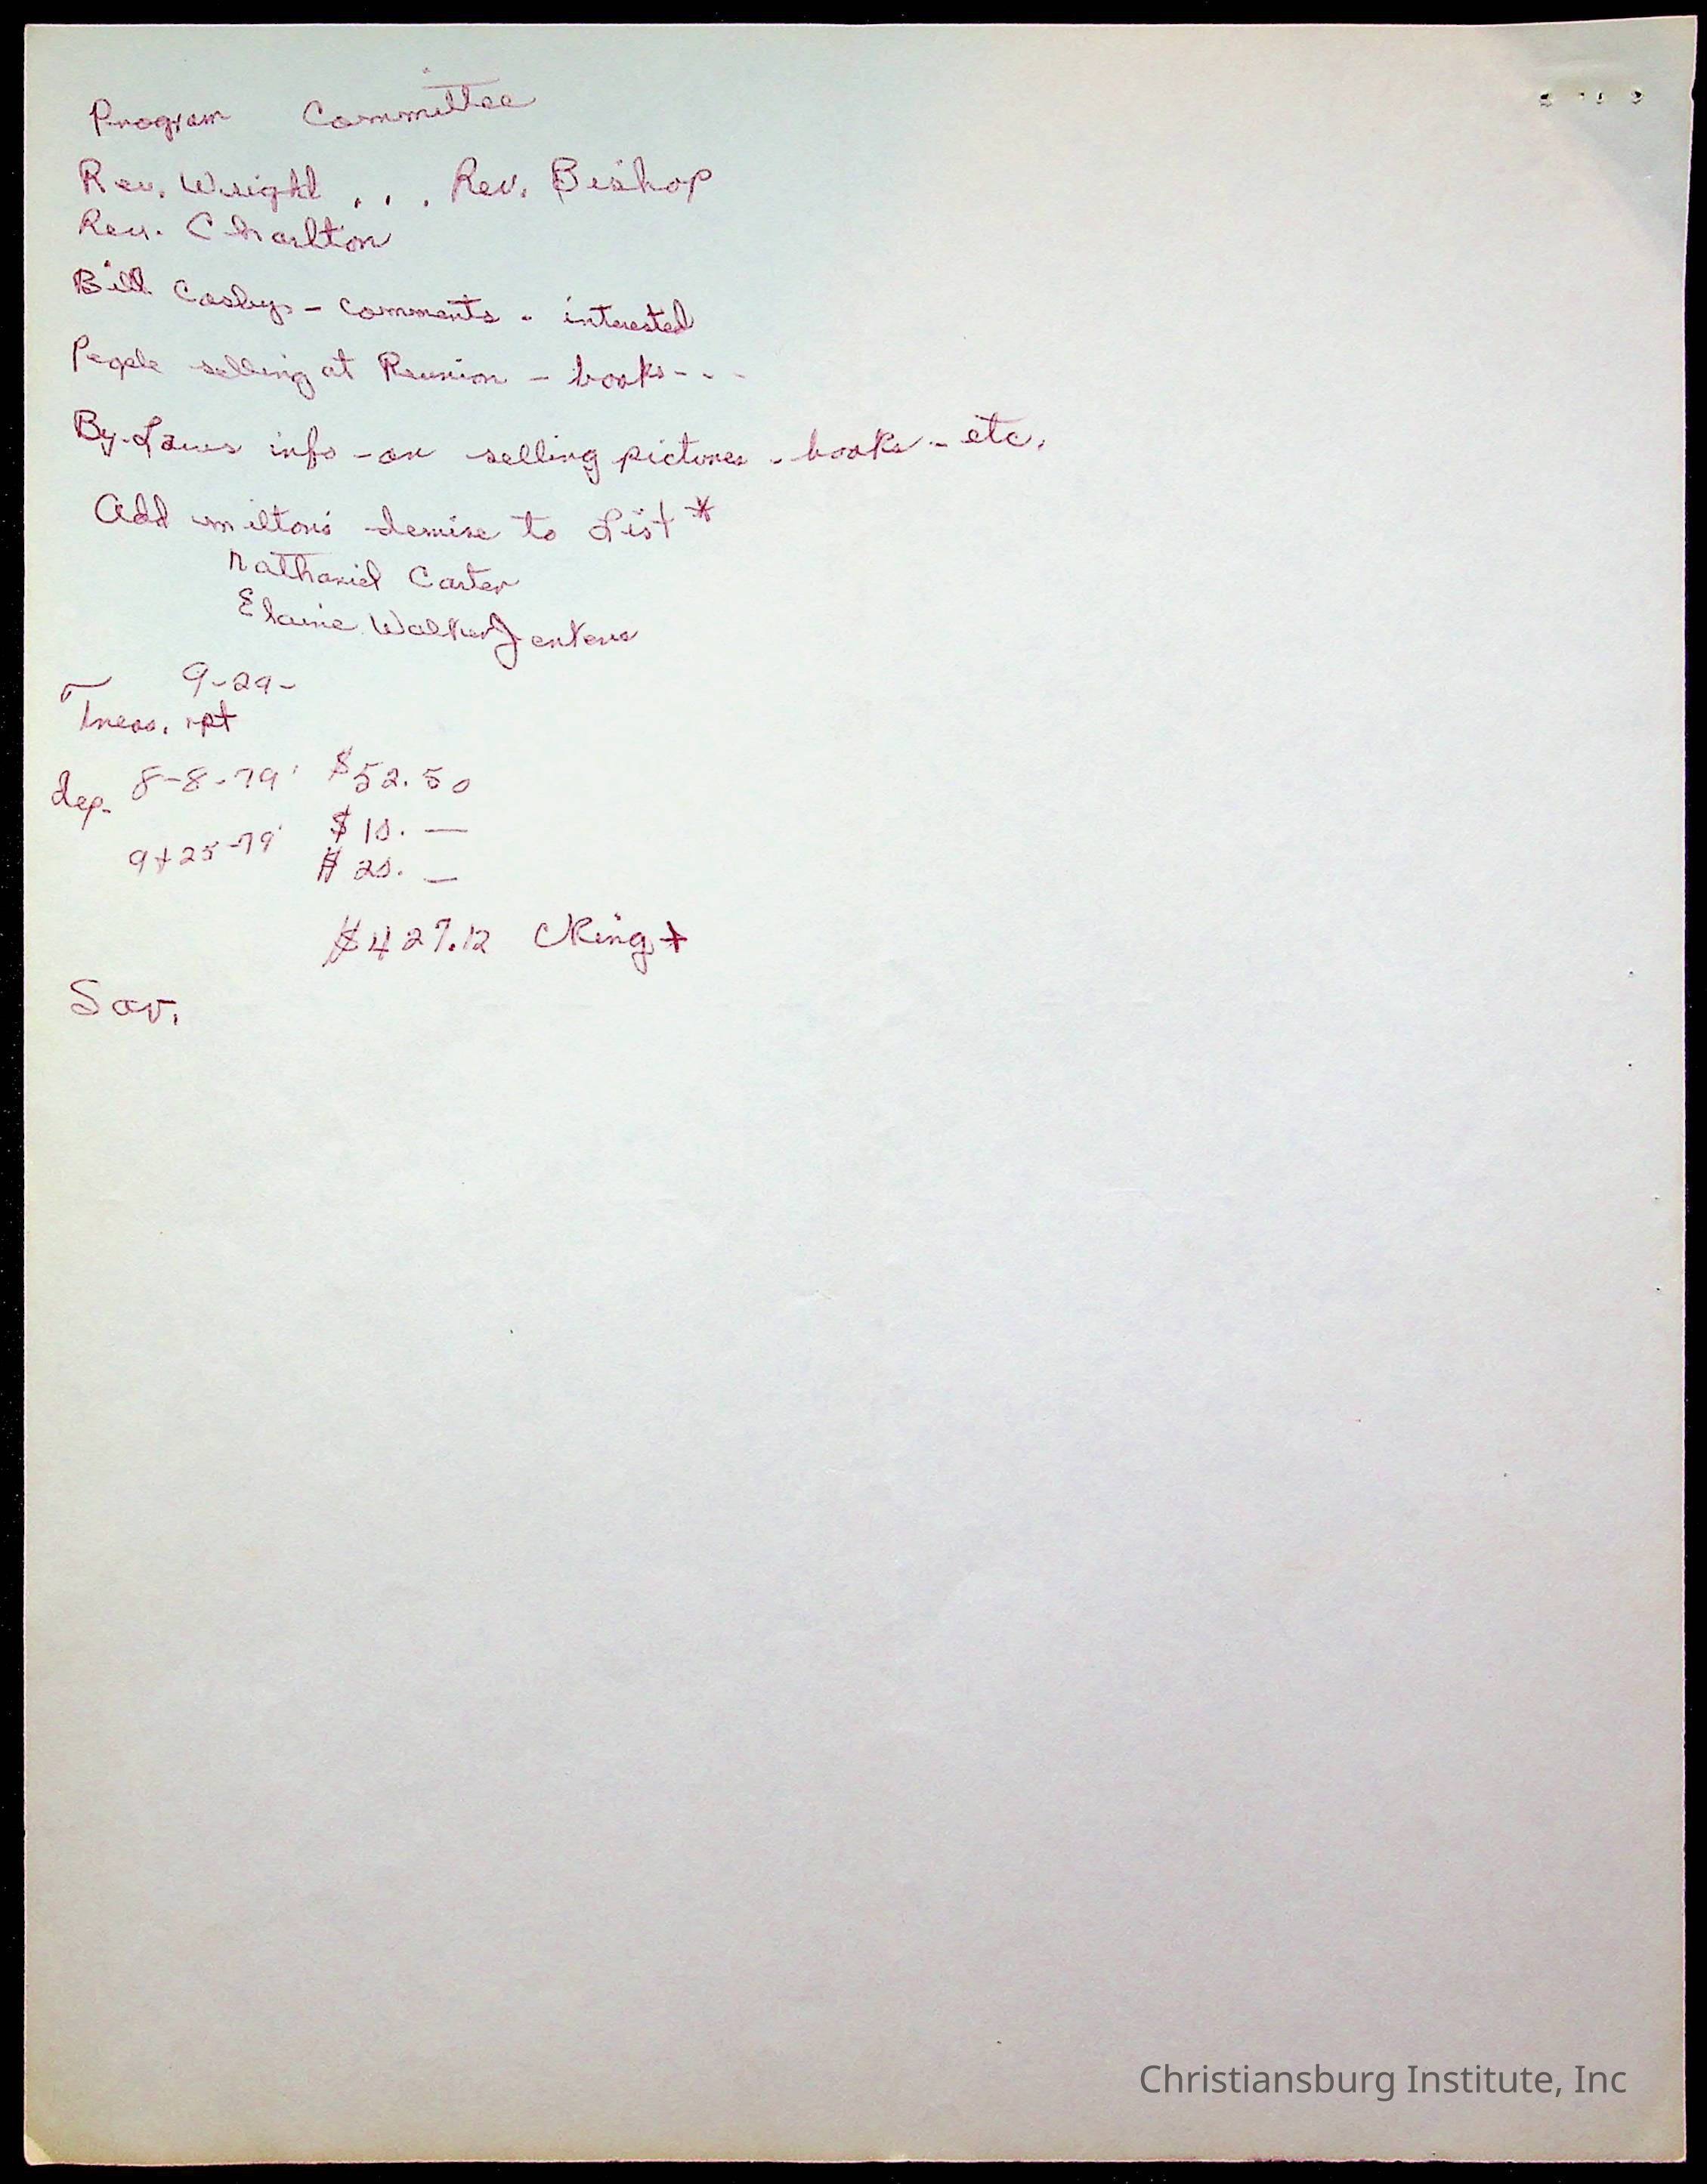 Program Committee
Rev. Wright . . . Rev. Bishop
Rev. Charlton
Bill Cosbys - comments - interested
People selling at Reunion - books - - -
By-Laws info - on selling pictures - books - etc.
Add milton's demise to List *
Nathaniel Carter
Elaine Walker Jenkens
9-29-
Treas. rpt
dep. 8-8-79' $52.50
$10. —
9-25-79' $20. —
$427.12 CKing +
Sav.
Christiansburg Institute, Inc